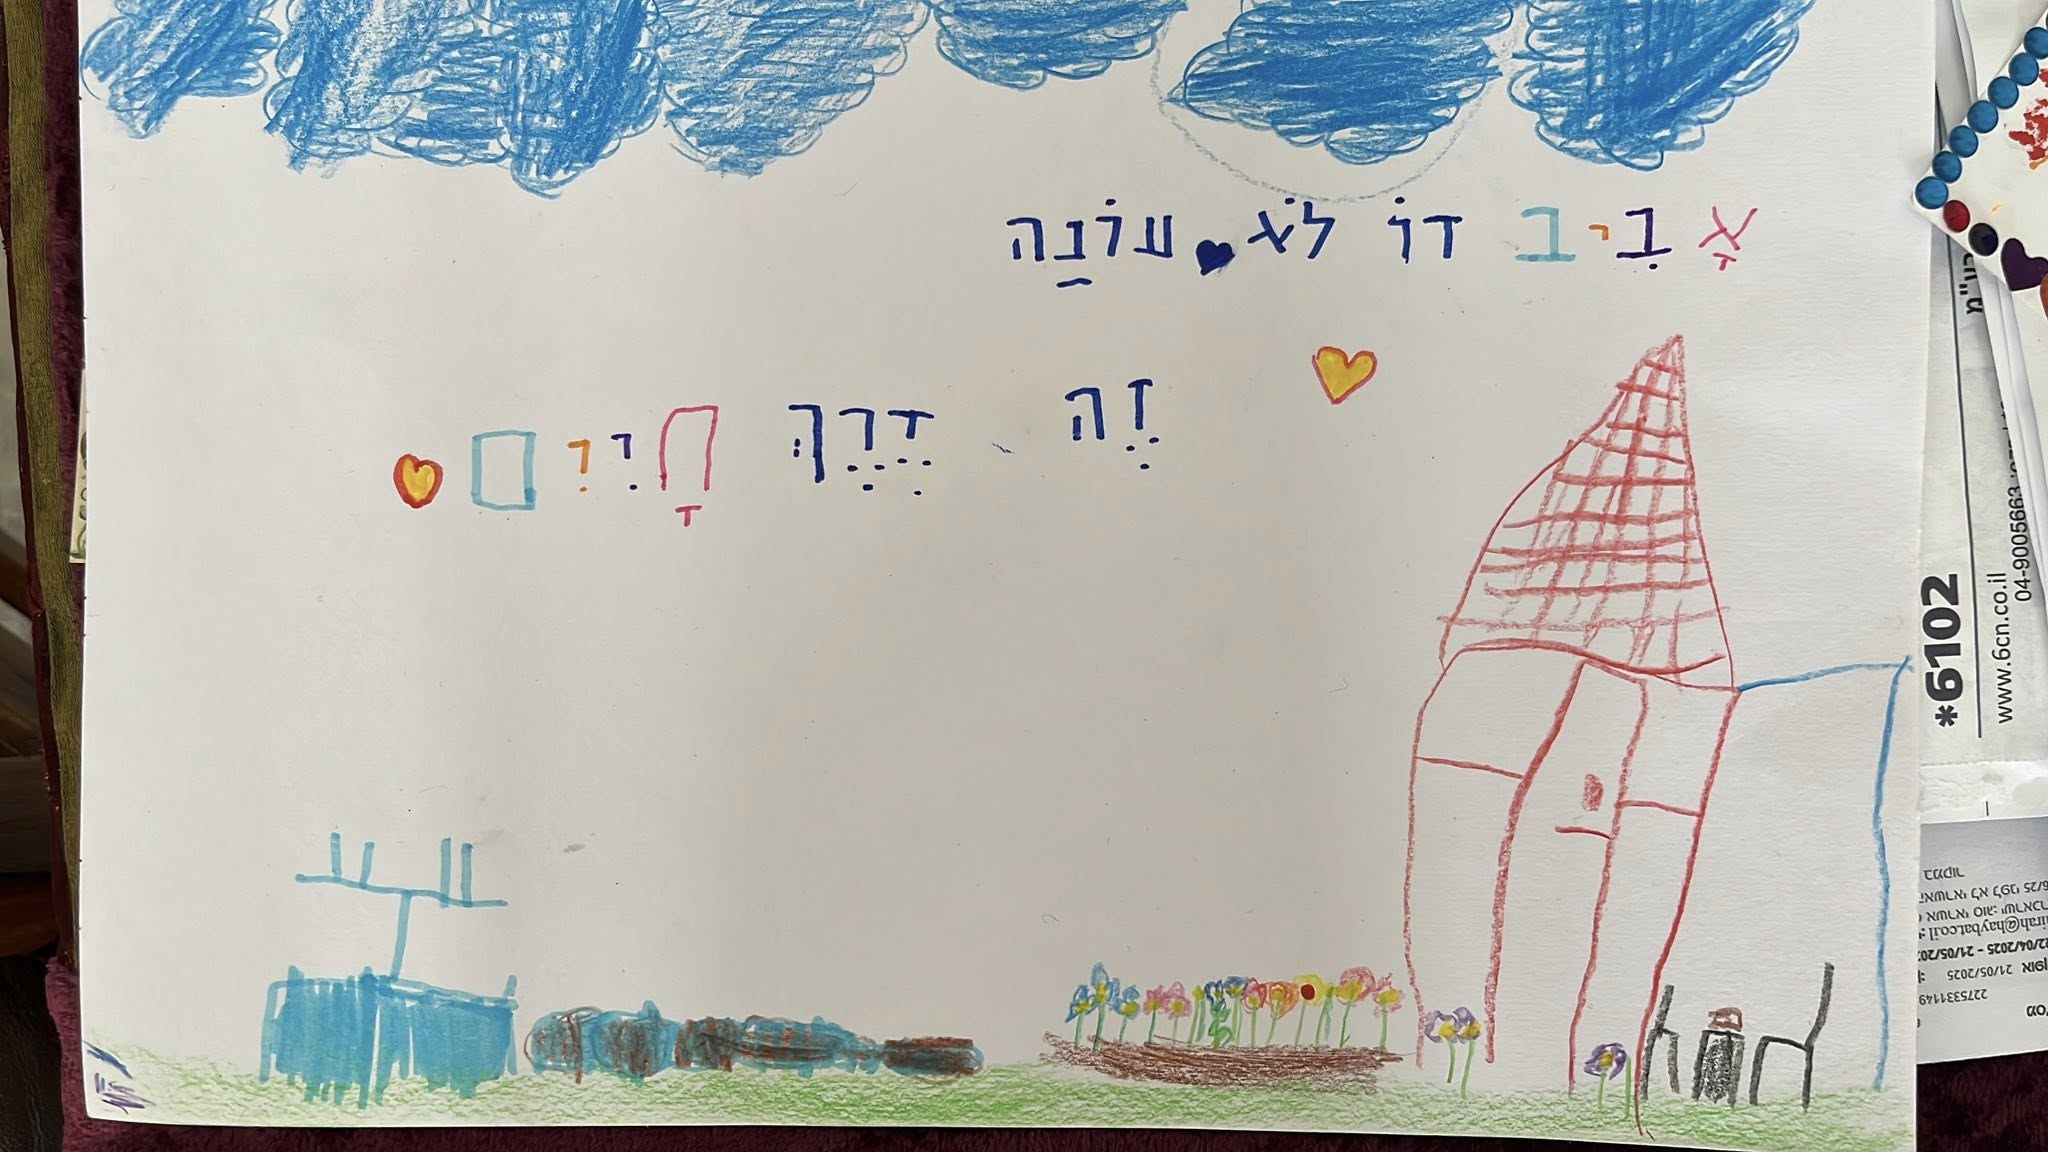 אָבִיב דוֹ לֹא עוֹנָה
זֶה דֶרֶךְ חָיִים
*6102
www.6cn.co.il
04-9005663